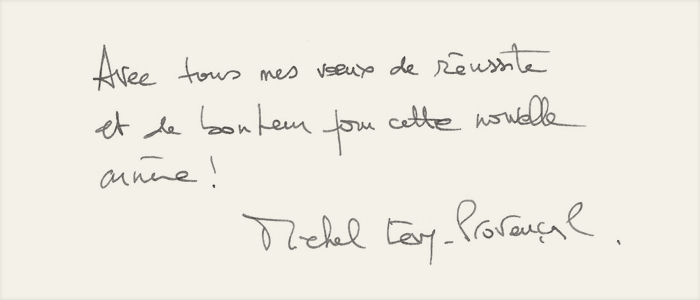 Avec tous mes vœux de réussite
et de bonheur pour cette nouvelle
année !
Michel Lévy-Provençal.